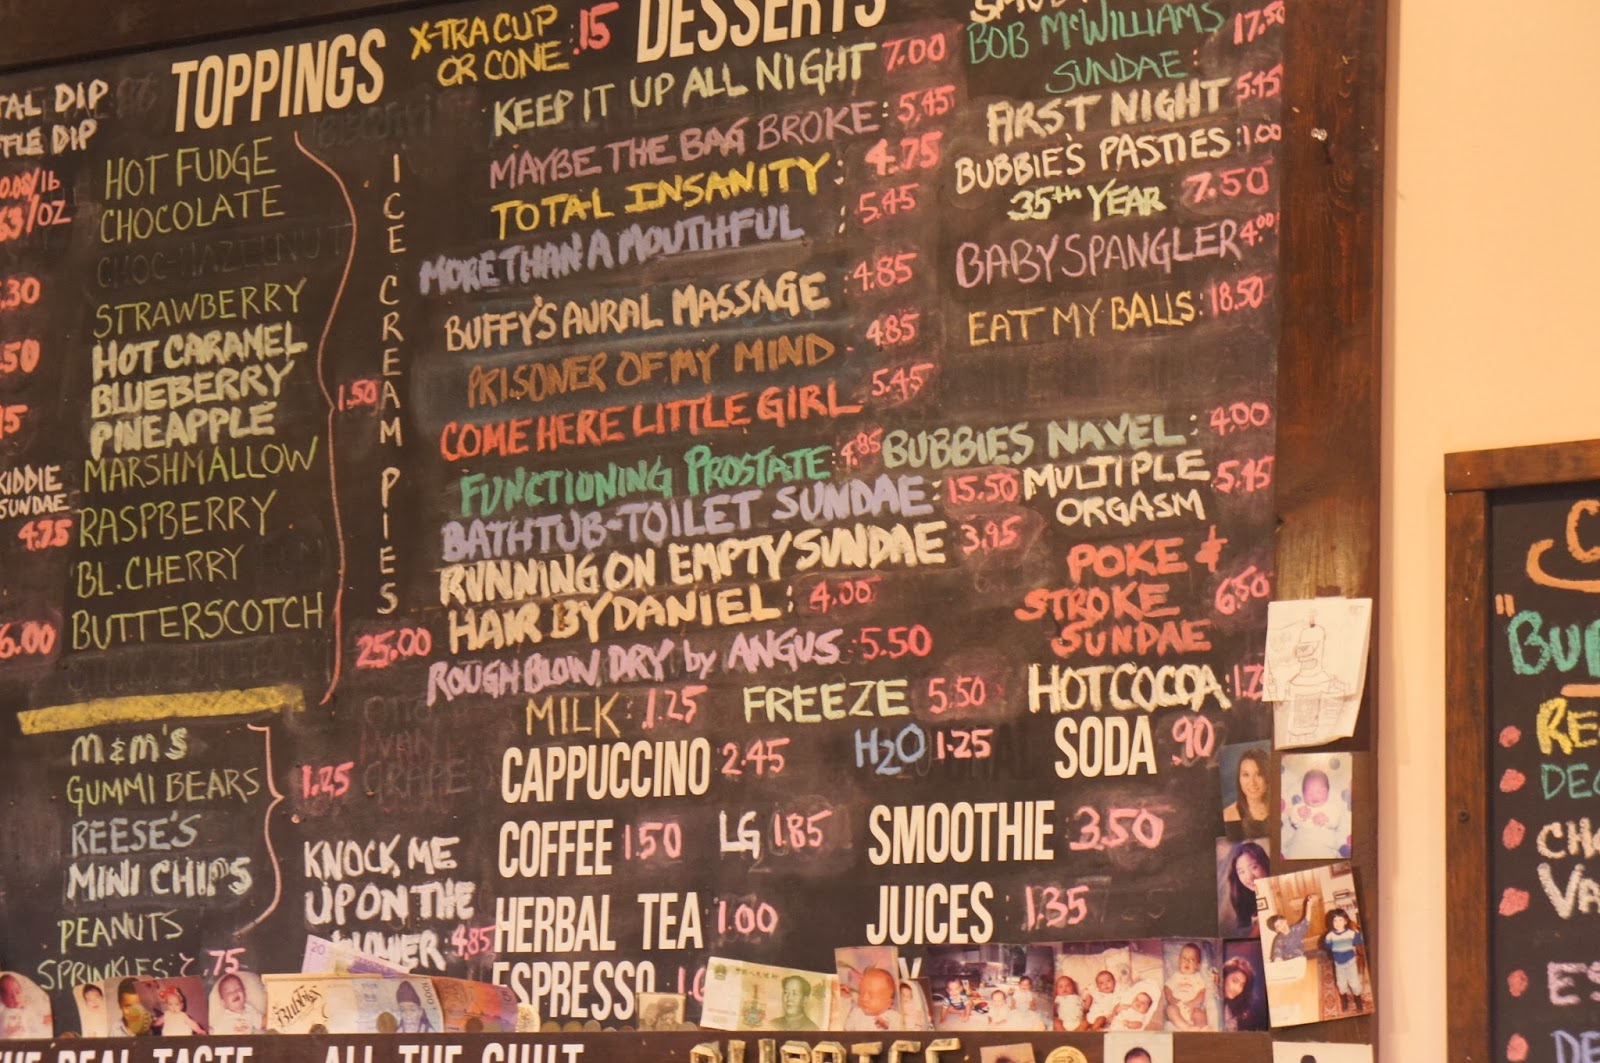 TAL DIP
TTLE DIP
/lb
63/OZ
.30
.50
KIDDIE
SUNDAE
4.75
6.00
TOPPINGS
HOT FUDGE
CHOCOLATE
CHOC-HAZELNUT
STRAWBERRY
HOT CARAMEL
BLUEBERRY
PINEAPPLE
MARSHMALLOW
RASPBERRY
BL. CHERRY
BUTTERSCOTCH
1.50
M&M'S
GUMMI BEARS
REESE'S
MINI CHIPS
PEANUTS
1.25
SPRINKLES: .75
ICE CREAM PIES
25.00
KNOCK ME
UPON THE
4.85
X-TRA CUP
OR CONE .15
DESSERTS
KEEP IT UP ALL NIGHT 7.00
MAYBE THE BAG BROKE: 5.45
TOTAL INSANITY: 4.75
MORE THAN A MOUTHFUL : 5.45
BUFFY'S AURAL MASSAGE :4.85
PRISONER OF MY MIND 4.85
COME HERE LITTLE GIRL 5.45
FUNCTIONING PROSTATE: 4.85
BATHTUB-TOILET SUNDAE: 15.50
RUNNING ON EMPTY SUNDAE 3.95
HAIR BY DANIEL: 4.00
ROUGH BLOW DRY by ANGUS: 5.50
BOB McWILLIAMS
SUNDAE: 17.50
FIRST NIGHT 5.45
BUBBIE'S PASTIES: 1.00
35th YEAR 7.50
BABY SPANGLER 4.00
EAT MY BALLS: 18.50
BUBBIES NAVEL: 4.00
MULTIPLE
ORGASM 5.45
POKE &
STROKE
SUNDAE 6.50
MILK: 1.25 FREEZE 5.50 HOT COCOA:
CAPPUCCINO 2.45 H2O 1.25 SODA .90
COFFEE 1.50 LG 1.85 SMOOTHIE 3.50
HERBAL TEA 1.00 JUICES 1.35
ESPRESSO
THE REAL TASTE ALL THE GUILT